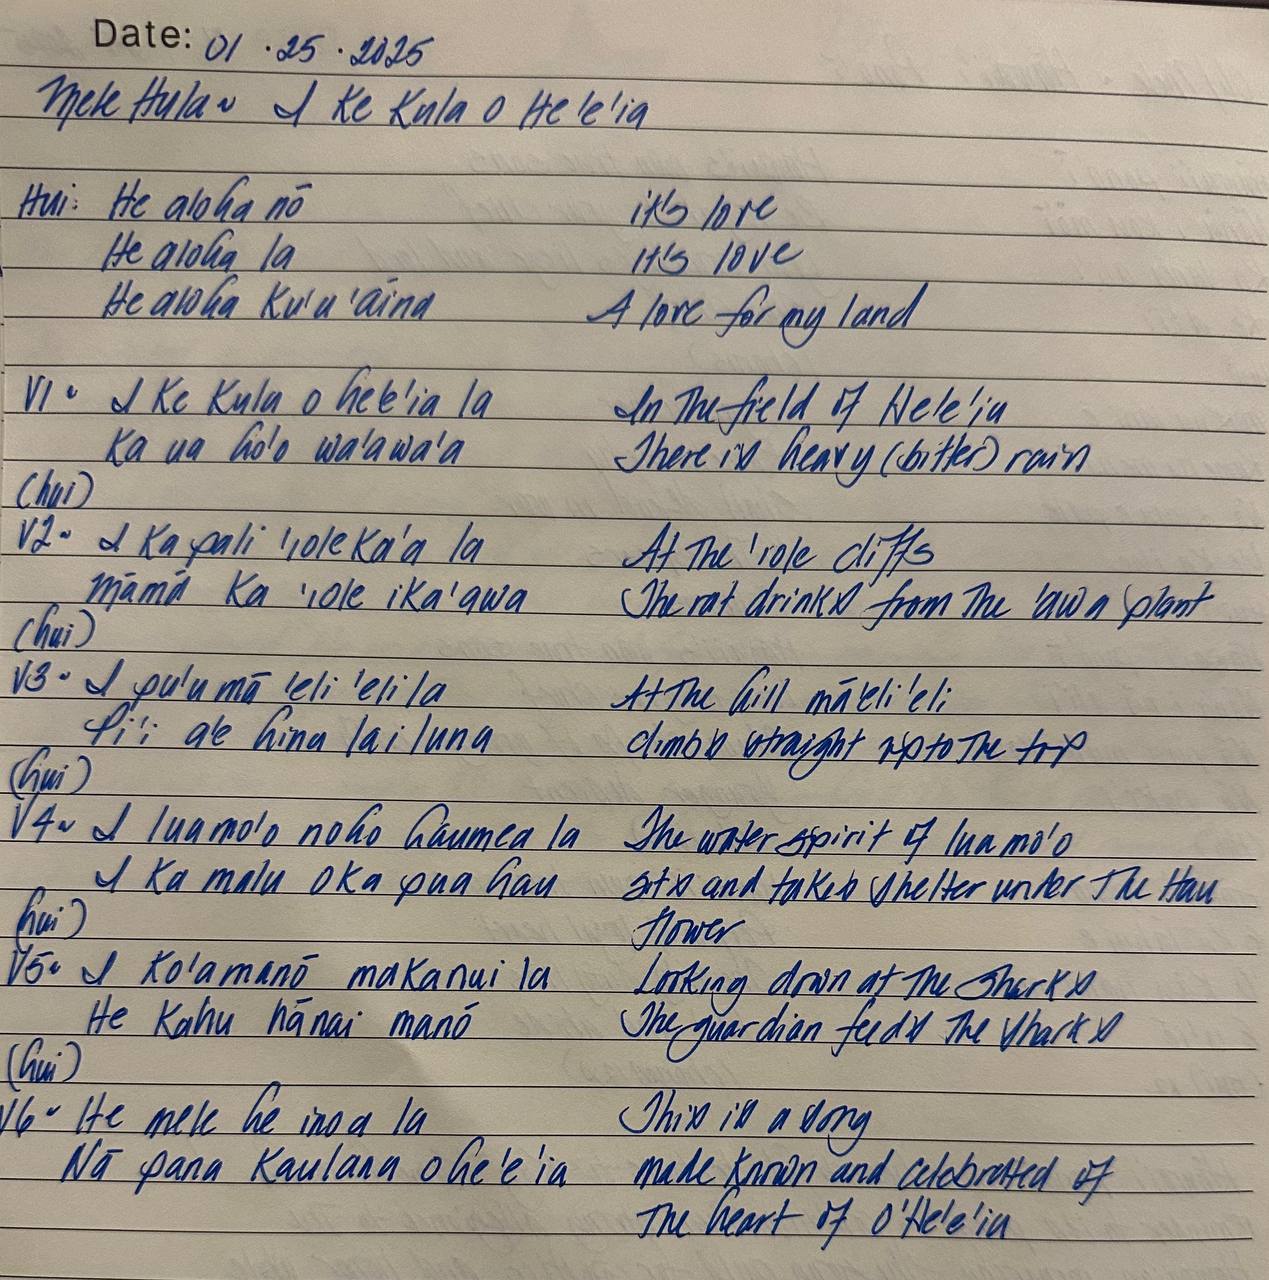 Date: 01 . 25 . 2025
Mele Hula ~ I Ke Kula o He'e'ia
Hui: He aloha nō it's love
He aloha la it's love
He aloha Ku'u 'āina A love for my land
V1 ~ I Ke Kula o he'e'ia la In The field of He'e'ia
Ka ua ho'o wa'awa'a There is heavy (bitter) rain
(hui)
V2 ~ I Ka pali 'iole Ka'a la At The 'iole cliffs
māmā Ka 'iole i Ka 'awa The rat drinks from The 'awa plant
(hui)
V3 ~ I pu'u mā 'eli 'eli la At The hill mā'eli'eli
Pi'i a'e hina la i luna climbs straight up to The top
(hui)
V4 ~ I luamo'o noho haumea la The water spirit of luamo'o
I Ka malu o Ka pua hau sits and takes shelter under The Hau
hui) flower
V5 ~ I Ko'amanō makanui la Looking down at The Sharks
He Kahu hānai manō The guardian feeds The sharks
(hui)
V6 ~ He mele he inoa la This is a song
Nā pana Kaulana o he'e'ia made known and celebrated of
The heart of O'He'e'ia